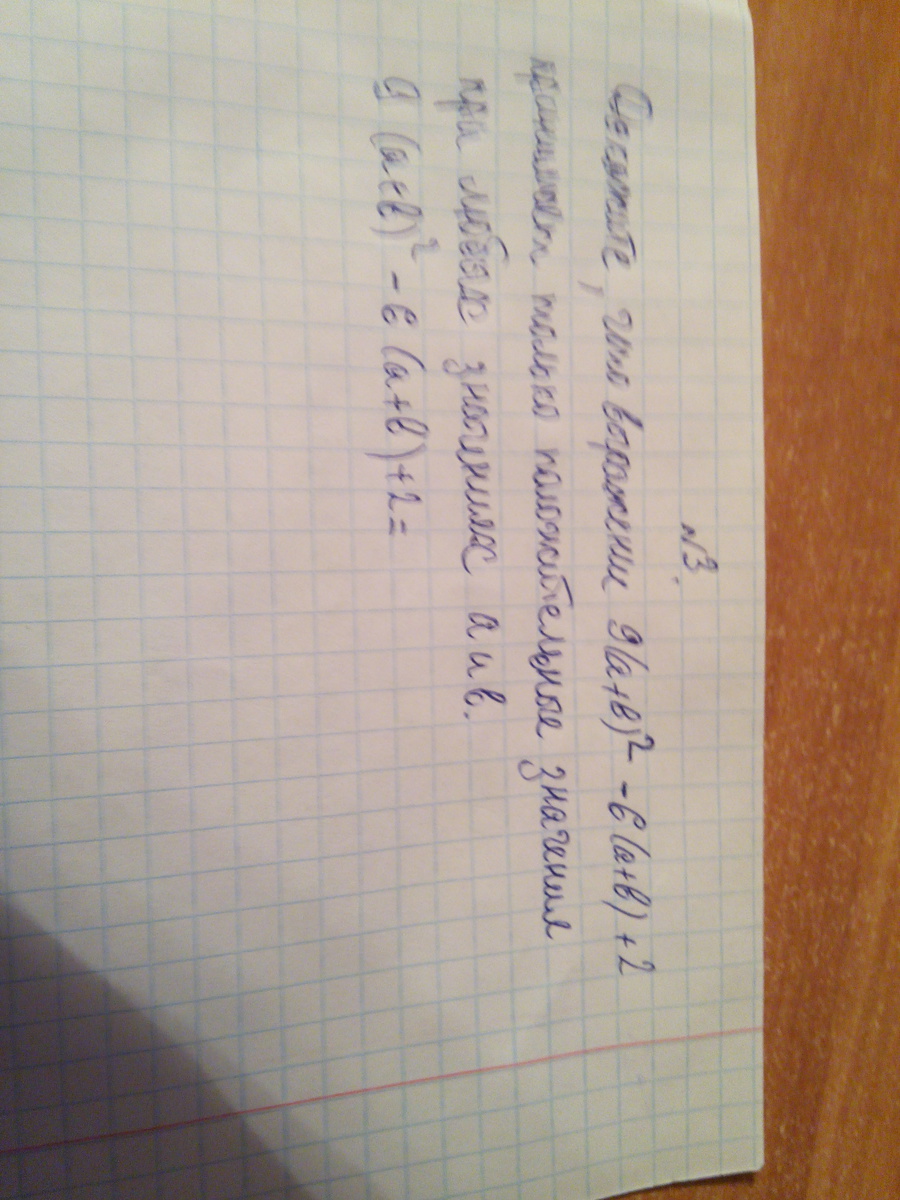 №3.
Докажите, что выражение 9(a+b)² - 6(a+b) + 2
принимает только положительные значения
при любых значениях a и b.
9 (a+b)² - 6 (a+b) + 2 =